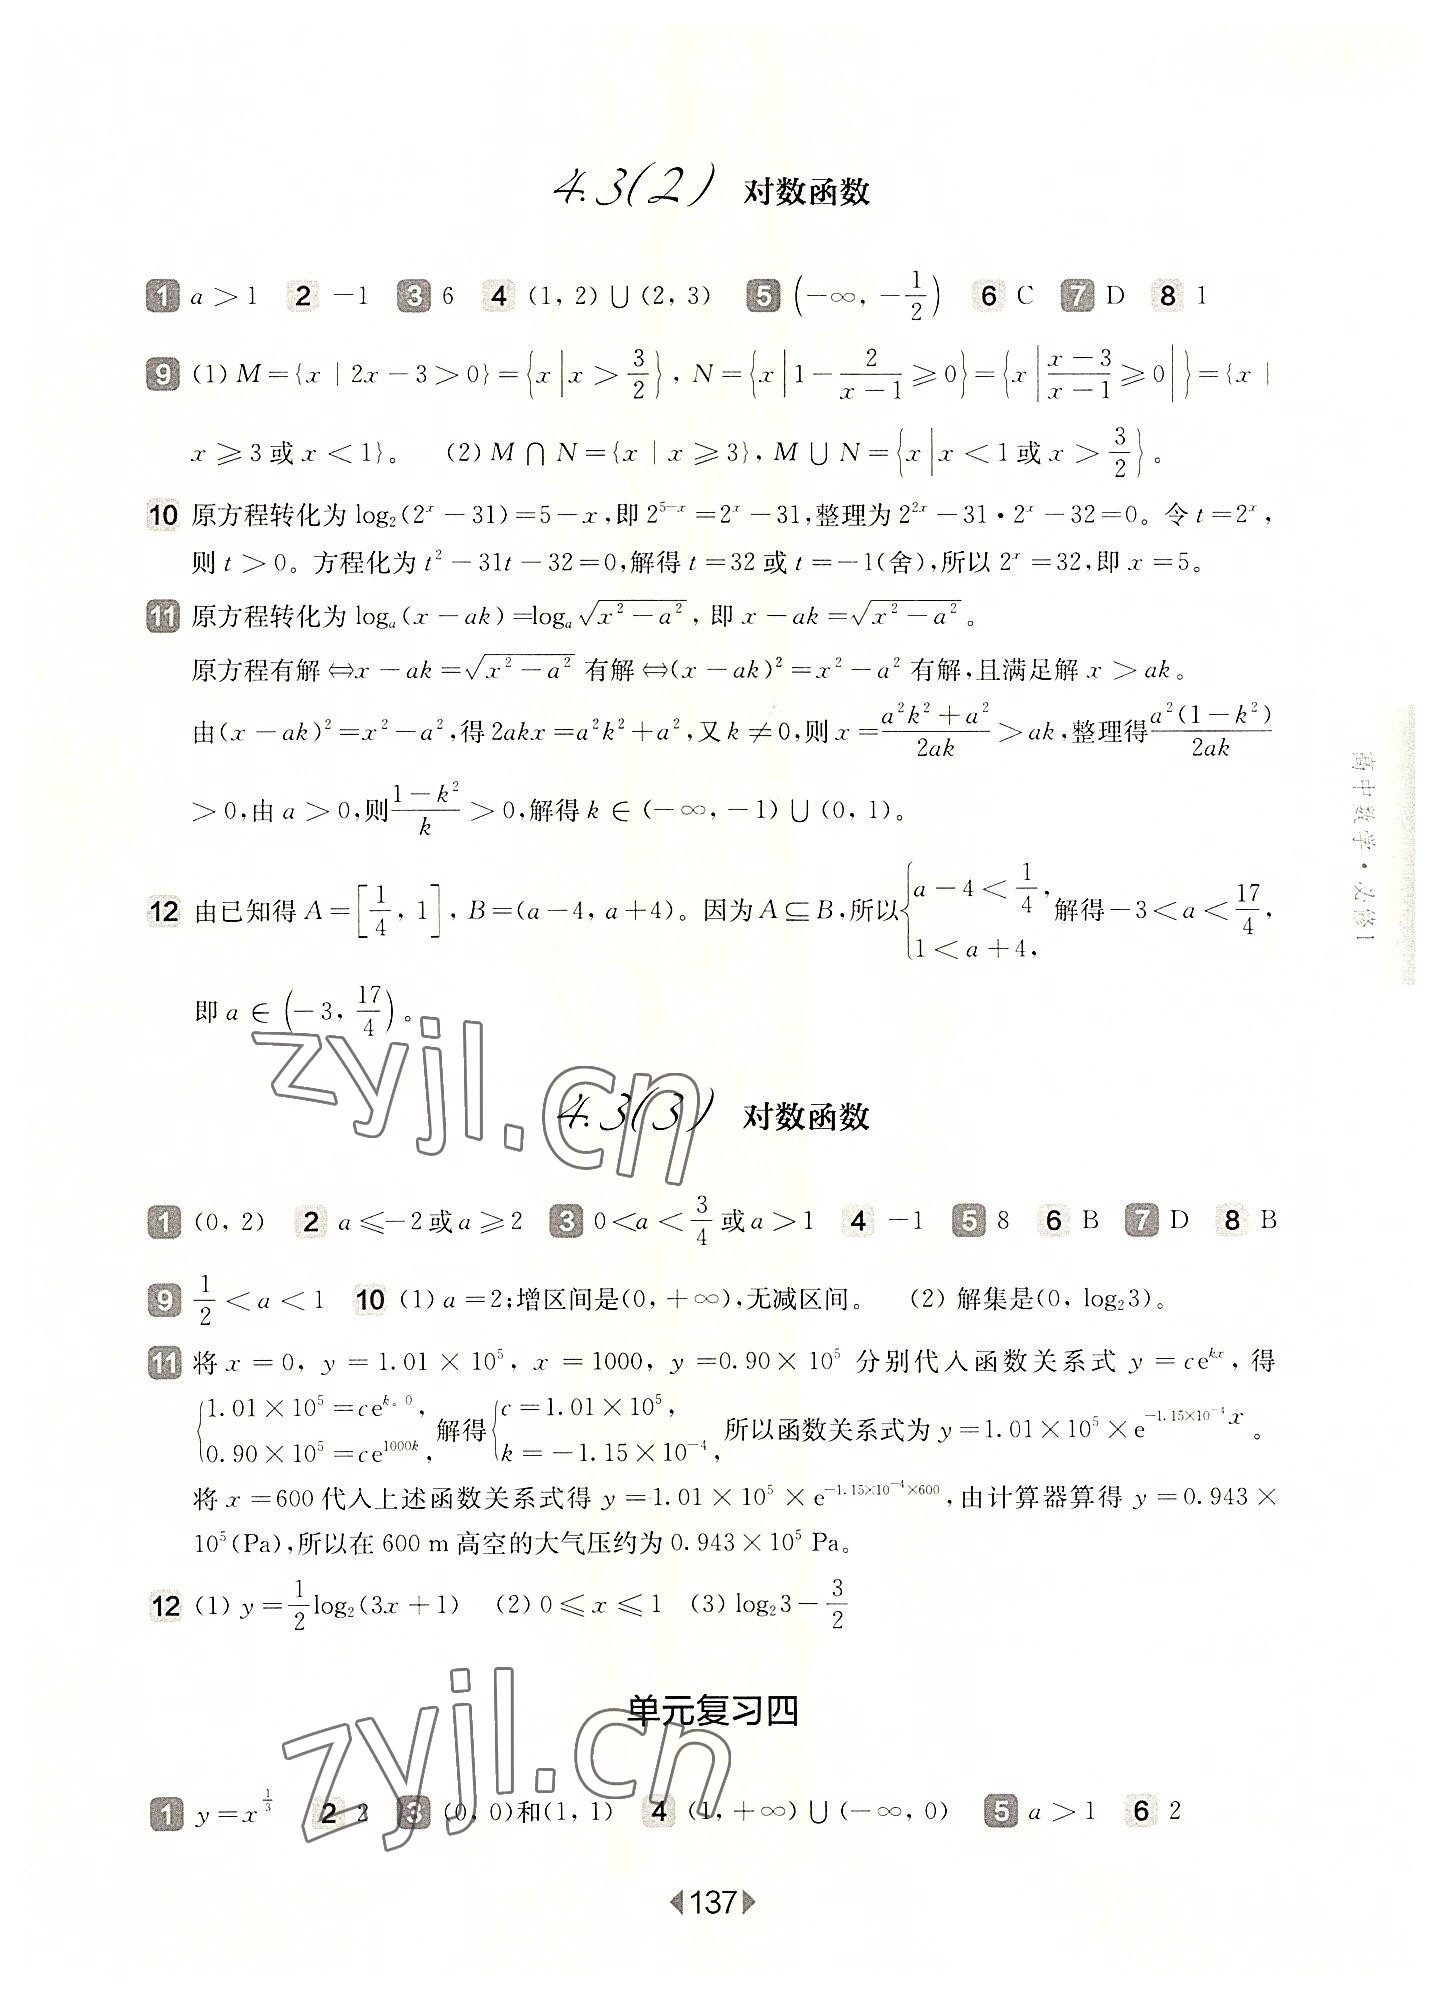 4.3(2) 对数函数
1 a>1 2 -1 3 6 4 (1, 2)∪(2, 3) 5 (-∞, -1/2) 6 C 7 D 8 1
9 (1) M={x | 2x-3>0}={x | x>3/2}, N={x | 1-2/(x-1)≥0}={x | (x-3)/(x-1)≥0 |}={x |
x≥3或x<1}。 (2) M∩N={x | x≥3}, M∪N={x | x<1或x>3/2}。
10 原方程转化为log₂(2ˣ-31)=5-x,即2⁵⁻ˣ=2ˣ-31,整理为2²ˣ-31·2ˣ-32=0。令t=2ˣ,
则t>0。方程化为t²-31t-32=0,解得t=32或t=-1(舍),所以2ˣ=32,即x=5。
11 原方程转化为logₐ(x-ak)=logₐ√(x²-a²), 即x-ak=√(x²-a²)。
原方程有解⇔x-ak=√(x²-a²)有解⇔(x-ak)²=x²-a²有解,且满足解x>ak。
由(x-ak)²=x²-a²,得2akx=a²k²+a²,又k≠0,则x=(a²k²+a²)/(2ak)>ak,整理得a²(1-k²)/(2ak)
>0,由a>0,则(1-k²)/k>0,解得k∈(-∞, -1)∪(0, 1)。
12 由已知得A=[1/4, 1], B=(a-4, a+4)。因为A⊆B,所以{a-4<1/4, 1<a+4, 解得-3<a<17/4,
即a∈(-3, 17/4)。
4.3(3) 对数函数
1 (0, 2) 2 a≤-2或a≥2 3 0<a<3/4或a>1 4 -1 5 8 6 B 7 D 8 B
9 1/2<a<1 10 (1) a=2;增区间是(0, +∞),无减区间。 (2) 解集是(0, log₂3)。
11 将x=0, y=1.01×10⁵, x=1000, y=0.90×10⁵分别代入函数关系式y=ce^{kx}, 得
{1.01×10⁵=ce^{k·0}, 0.90×10⁵=ce^{1000k}, 解得{c=1.01×10⁵, k=-1.15×10⁻⁴, 所以函数关系式为y=1.01×10⁵×e^{-1.15×10⁻⁴x}。
将x=600代入上述函数关系式得y=1.01×10⁵×e^{-1.15×10⁻⁴×600},由计算器算得y=0.943×
10⁵(Pa),所以在600 m高空的大气压约为0.943×10⁵ Pa。
12 (1) y=1/2log₂(3x+1) (2) 0≤x≤1 (3) log₂3-3/2
单元复习四
1 y=x^{1/3} 2 2 3 (0, 0)和(1, 1) 4 (1, +∞)∪(-∞, 0) 5 a>1 6 2
137
高中数学·必修1
zyjl.cn
zyjl.cn